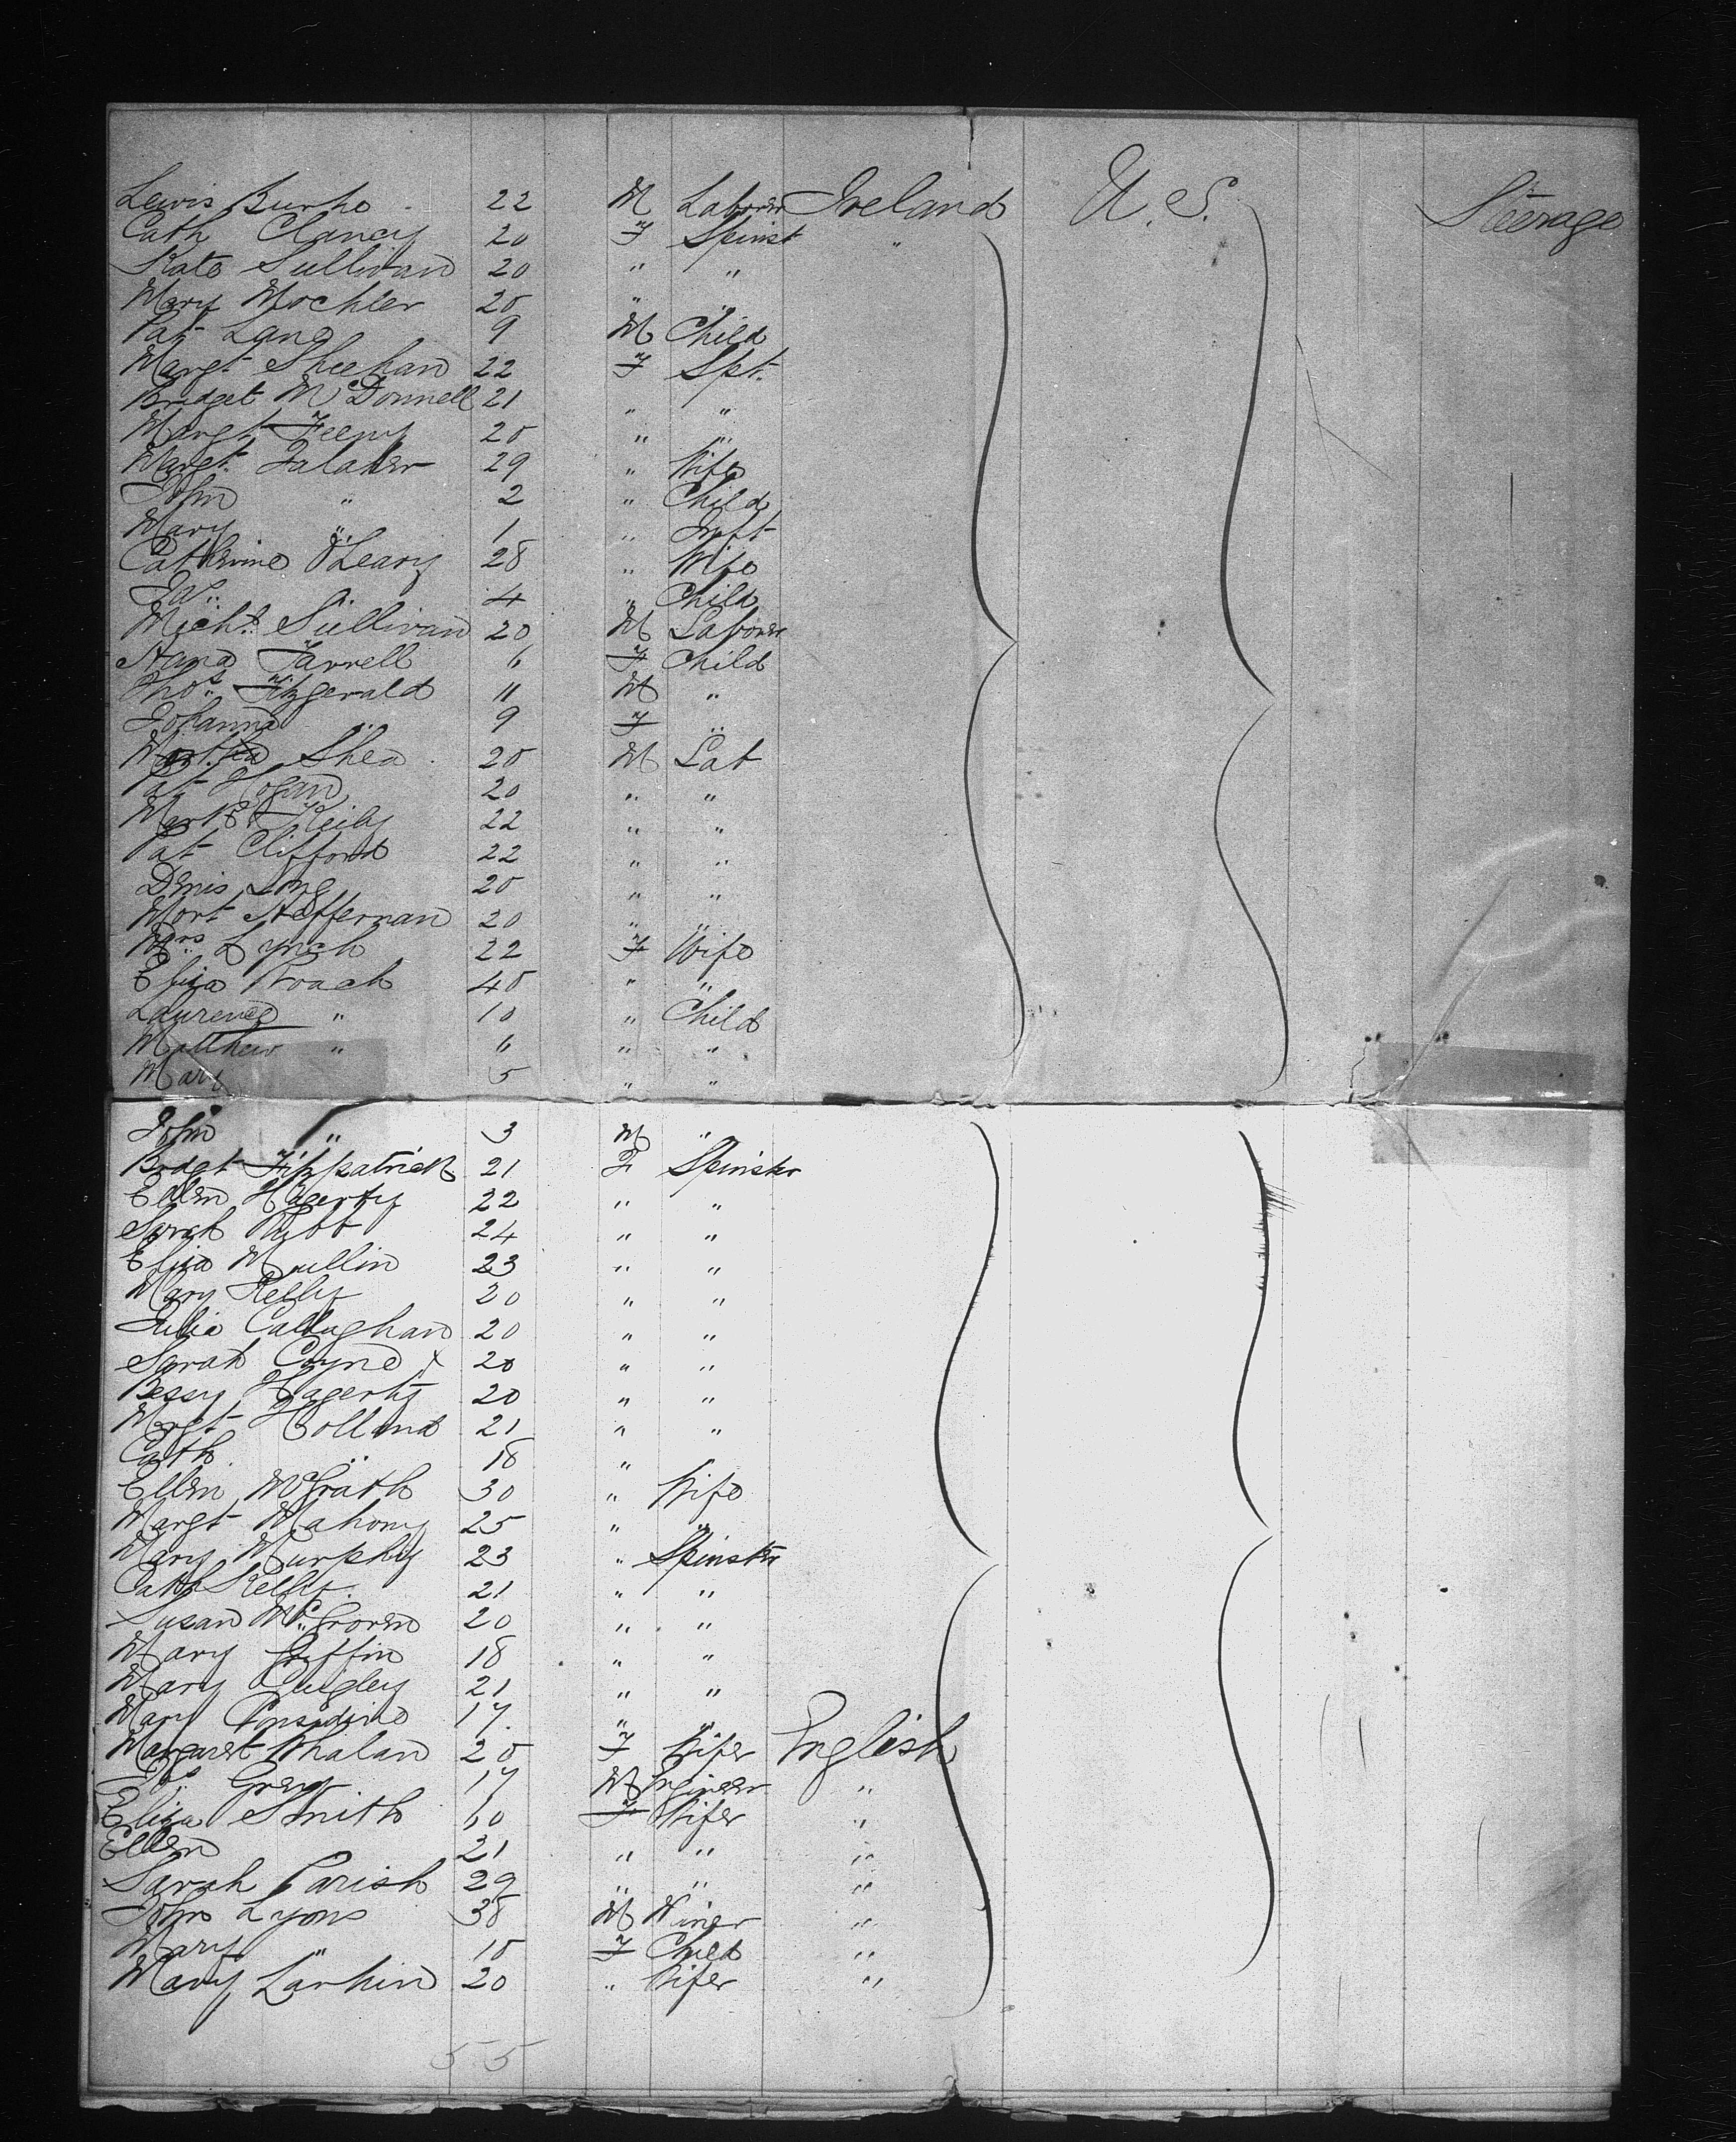 Lewis Burke 22 M Laborer Ireland U.S. Steerage
Cath Clancy 20 F Spinst "
Kate Sullivan 20 " "
Mary Mochler 20 " "
Pat Lane 9 M Child
Margt Sheehan 22 F Spt.
Bridget McDonnell 21 " "
Margt Feeny 20 " "
Margt. Galaher 29 " Wife
John " 2 " Child
Mary " 1 " Inft
Catherine O'Leary 28 " Wife
" 4 " Child
Michl. Sullivan 20 M Laborer
Hana Farrell 6 F Child
Thos. Fitzgerald 11 M "
Johanna " 9 F "
Shea 20 M Lab
Pat Hogan 20 " "
Keily 22 " "
Pat Clifford 22 " "
Denis Long 20 " "
Mort Heffernan 20 " "
Mrs. Lynch 22 F Wife
Eliza Roach 40 " "
Laurence " 10 " Child
Matthew " 6 " "
Mary 5 " "
John " 3 M "
Bridgt Fitzpatrick 21 F Spinster
Ellen Hagerty 22 " "
Sarah 24 " "
Eliza Mullin 23 " "
Mary Kelly 20 " "
Julia Callaghan 20 " "
Sarah Coyne x 20 " "
Bessy Hagerty 20 " "
Margt Holland 21 " "
Cath " 18 "
Ellen McGrath 30 " Wife
Margt Mahony 25 " "
Mary Murphy 23 " Spinster
Cath Kelly 21 " "
Susan McGovern 20 " "
Mary Griffin 18 " "
Mary Quigley 21 " "
Mary Considine 17 " "
Margaret Whalan 20 F Wifer English
17 M Engineer "
Eliza Smith 60 F Wifer "
Ellen 21 " " "
Sarah Parish 29 " " "
John Lyons 38 M Miner "
Mary " 10 F Child "
Mary Larkin 20 " Wifer "
55